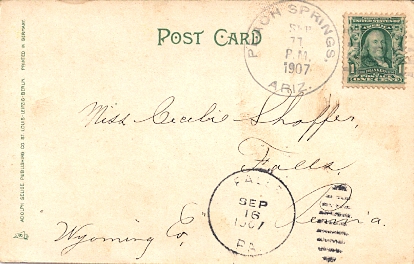 POST CARD
PEACH SPRINGS,
SEP
11
P.M.
1907
ARIZ.
UNITED STATES
1 1
ONE CENT
Miss Cecelie Shaffer,
Falls,
Wyoming Co, Penna.
FALLS
SEP
16
1907
PA.
ADOLPH SELIGE PUBLISHING CO ST LOUIS-LEIPZIG-BERLIN PRINTED IN GERMANY